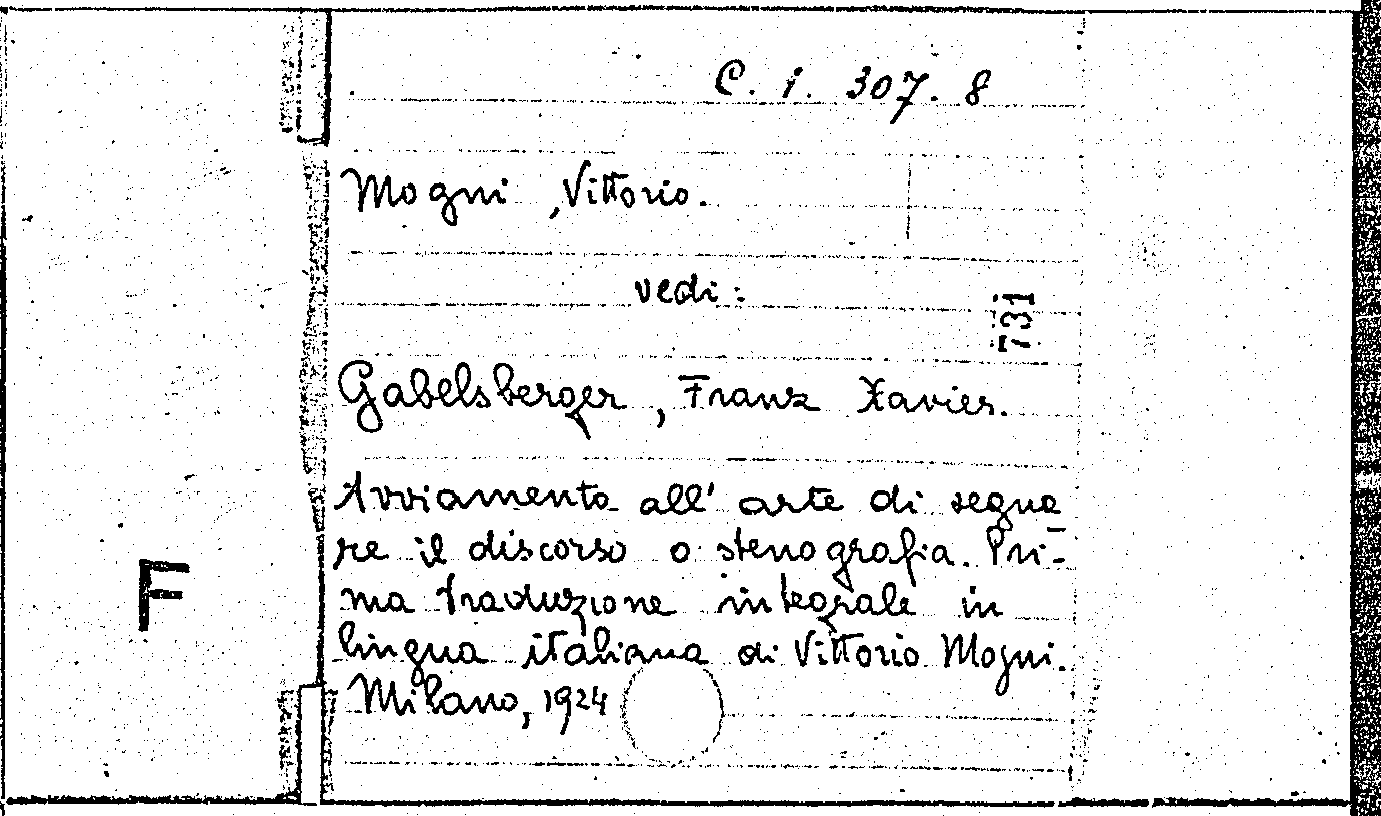 C. 1. 307. 8
Mogni, Vittorio.
vedi:
731
Gabelsberger, Franz Xavier.
Avviamento all' arte di segua
re il discorso o stenografia. Pri-
ma traduzione integrale in
lingua italiana di Vittorio Mogni.
Milano, 1924
F